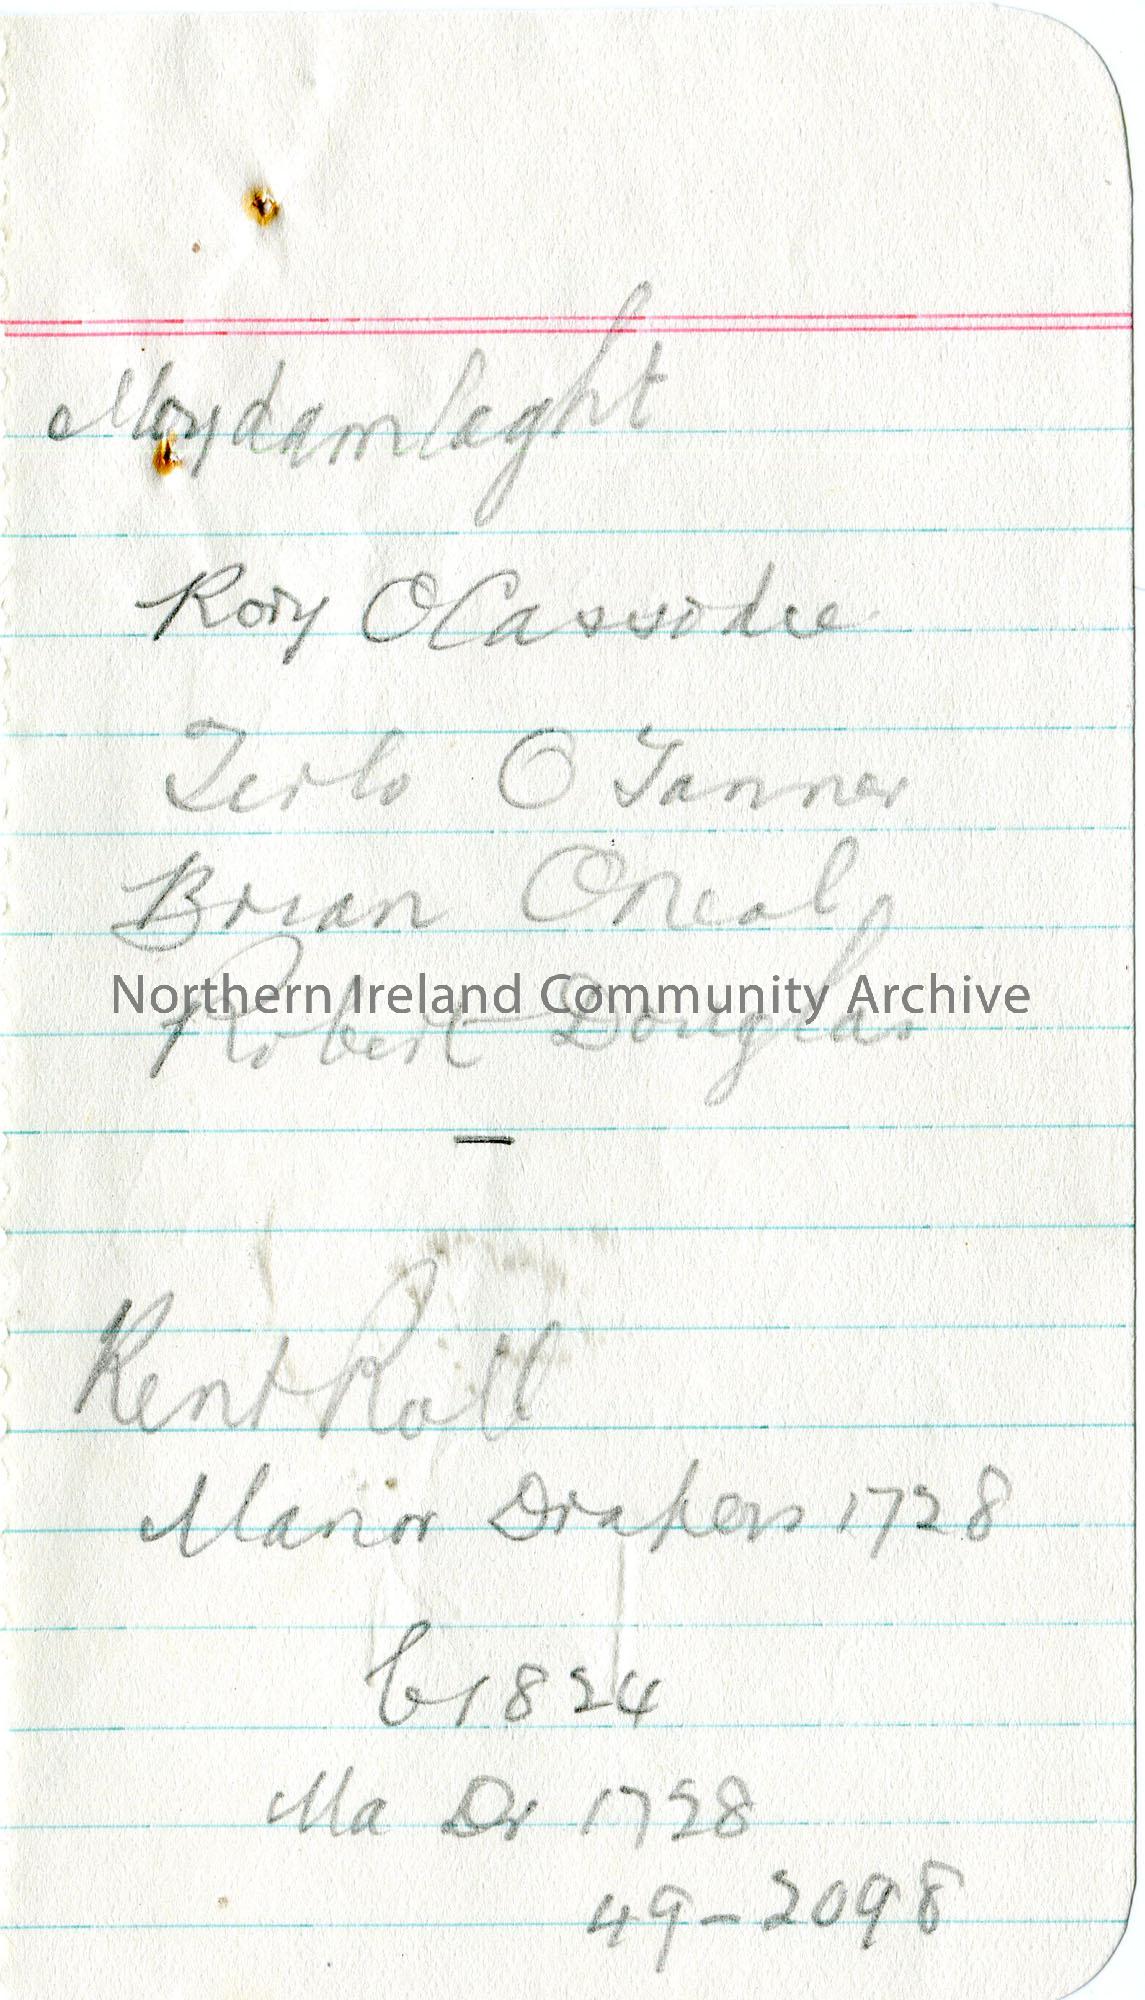 Moydamlaght
Rory OCassidie
Terlo O Tanner
Brian Oneal
Northern Ireland Community Archive
Robert Douglas
—
Rent Roll
Manor Drapers 1728
1824
Ma Dr 1728
49-2098